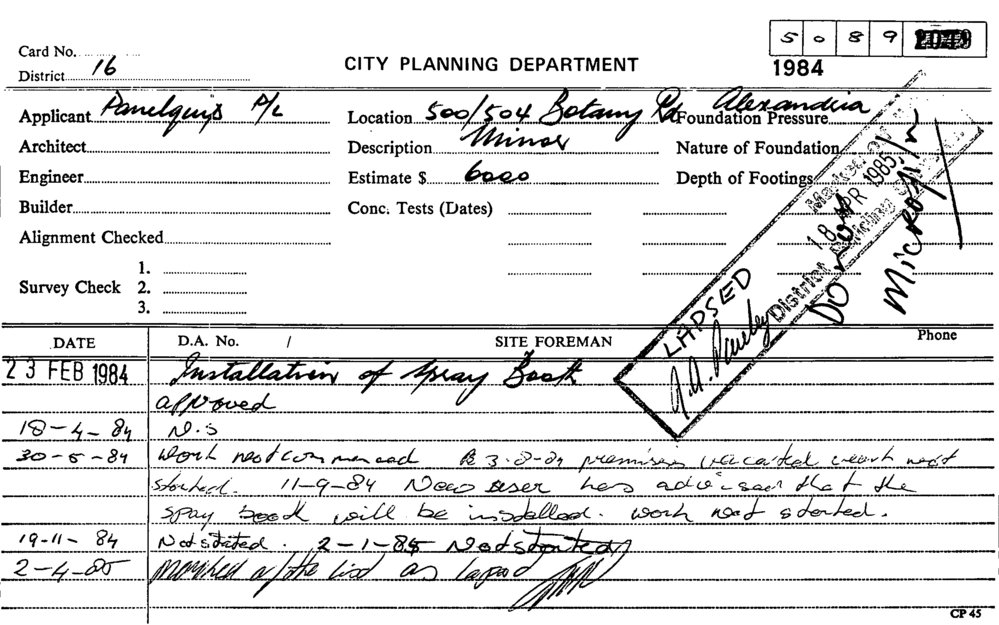 5 0 8 9 2048
Card No.
1984
District 16
CITY PLANNING DEPARTMENT
Applicant Panelquip P/L
Location 500/504 Botany Rd Alexandria
Foundation Pressure
Architect
Description Minor
Nature of Foundation
Engineer
Estimate $ 6000
Depth of Footings
Builder
Conc. Tests (Dates)
Alignment Checked
Survey Check
1.
2.
3.
LAPSED
18 APR 1985
District Building
Do not
Microfilm
DATE
D.A. No. /
SITE FOREMAN
Phone
23 FEB 1984 Installation of Spray Booth
approved
18-4-84 N.S
30-5-84 Work not commenced 3-8-84 premises vacated work not
started. 11-9-84 New user has advised that the
spay booth will be installed. work not started.
19-11-84 Not stated. 2-1-85 Not started
2-4-85 marked o/the list as lapsed
CP 45